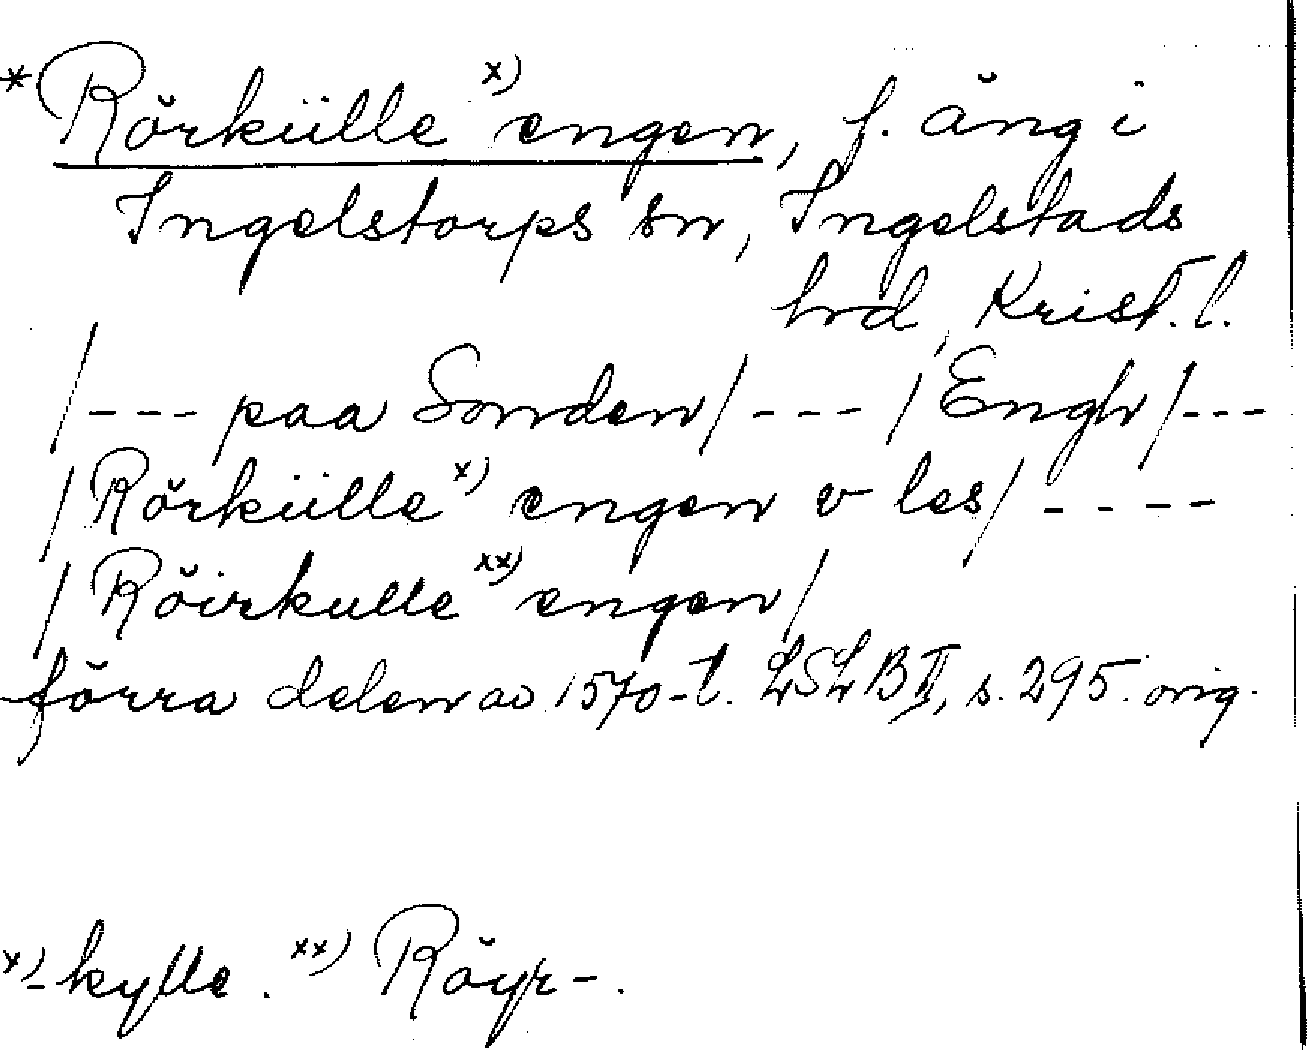 *Rörkülle x) engen, f. äng i
Ingelstorps sn, Ingelstads
hrd, Krist. l.
/--- paa Sonden/--- /Engh/---
/Rörkülle x) engen v les/----
/Röirkulle xx) engen/
förra delen av 1570-t. LSLB II, s. 295. orig.
x) -kylle. xx) Röyr-.